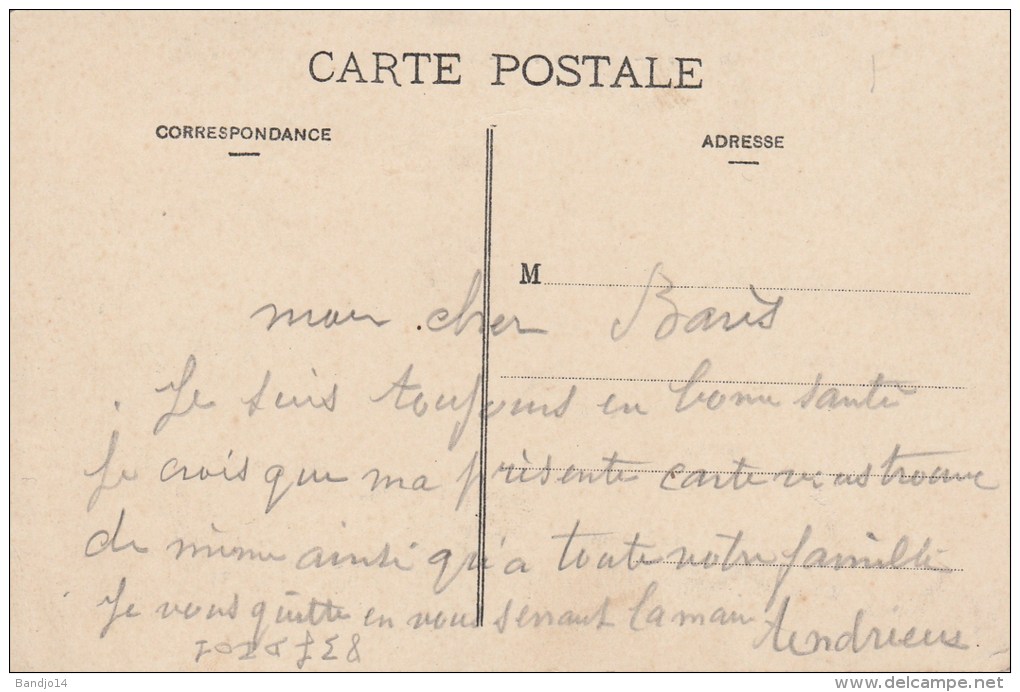 CARTE POSTALE
CORRESPONDANCE
ADRESSE
M
mon cher Baris
Je suis toujours en bonne santé
Je crois que ma présente carte vous trouve
de même ainsi qu'a toute votre famille
Je vous quitte en vous serrant la main Andrieus
Bandjo14
delcampe.net